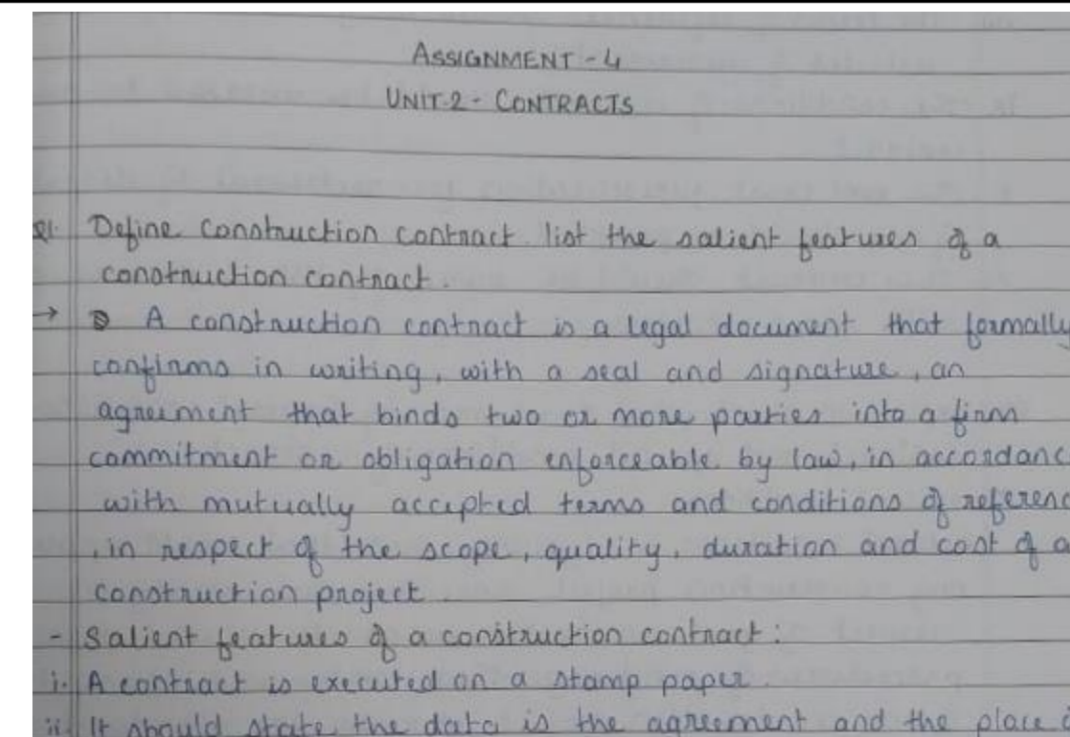 ASSIGNMENT - 4
UNIT-2 - CONTRACTS
Q1. Define construction contract. list the salient features of a
construction contract.
→ A construction contract is a legal document that formally
confirms in writing, with a seal and signature, an
agreement that binds two or more parties into a firm
commitment or obligation enforceable by law, in accordanc
with mutually accepted terms and conditions of referenc
, in respect of the scope, quality, duration and cost of a
construction project
- Salient features of a construction contract :
i. A contract is executed on a stamp paper
ii. It should state the data is the agreement and the place